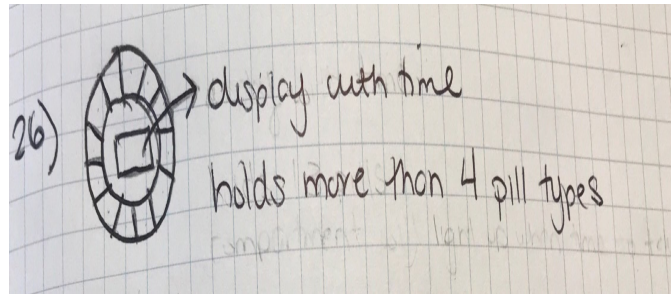 26)
display with time
holds more than 4 pill types